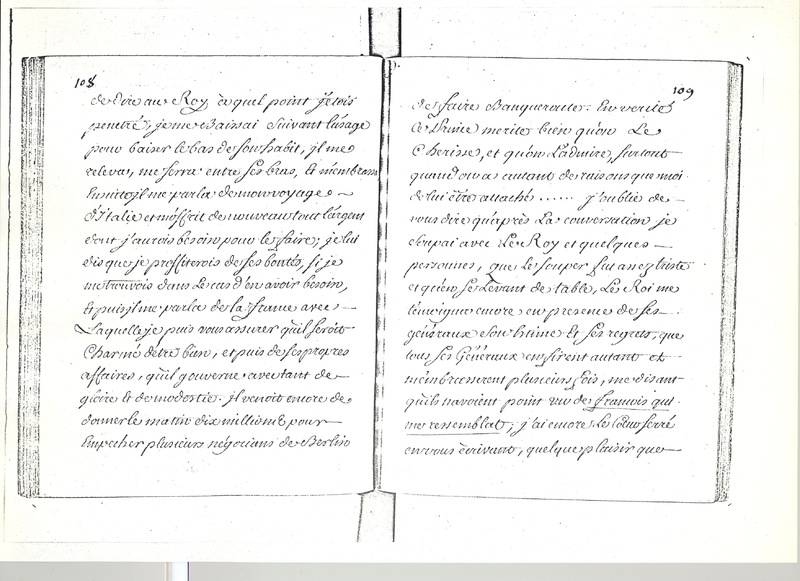 108
de dire au Roy à quel point j'etois
penetré, je me Baissai suivant l'usage
pour baiser le bas de son habit, il me
releva, me serra entre ses bras, et m'embrassa
Ensuite il me parla de mon voyage
d'Italie et m'offrit de nouveau tout l'argent
dont j'aurois besoin pour le faire; je lui
dis que je profiterois de ses bontés, si je
me trouvois dans Le cas d'en avoir besoin,
Et puis il me parla de la france avec
Laquelle je puis vous assurer qu'il seroit
Charmé detre bien, et puis de ses propres
affaires, qu'il gouverne avec tant de
gloire Et de modestie. il venoit encore de
donner le matin dix millions pour
Empecher plusieurs négocians de Berlin
109
de faire Banqueroute. En verité
Ce Prince merite bien qu'on Le
Cherisse, et qu'on L'admire, surtout
quand on a autant de raisons que moi
de lui être attaché ...... j'oublie de
vous dire qu'après La conversation je
soupai avec Le Roy et quelques
personnes, que Le souper fut assez triste
et qu'en se Levant de table, Le Roi me
temoigna encore en presence de ses
généraux son Estime Et ses regrets, que
tous ses Généraux en firent autant et
m'embrasserent plusieurs fois, me disant
qu'ils n'avoient point vu de francois qui
me ressemblat; j'ai encore Le Coeur serré
en vous écrivant, quelque plaisir que